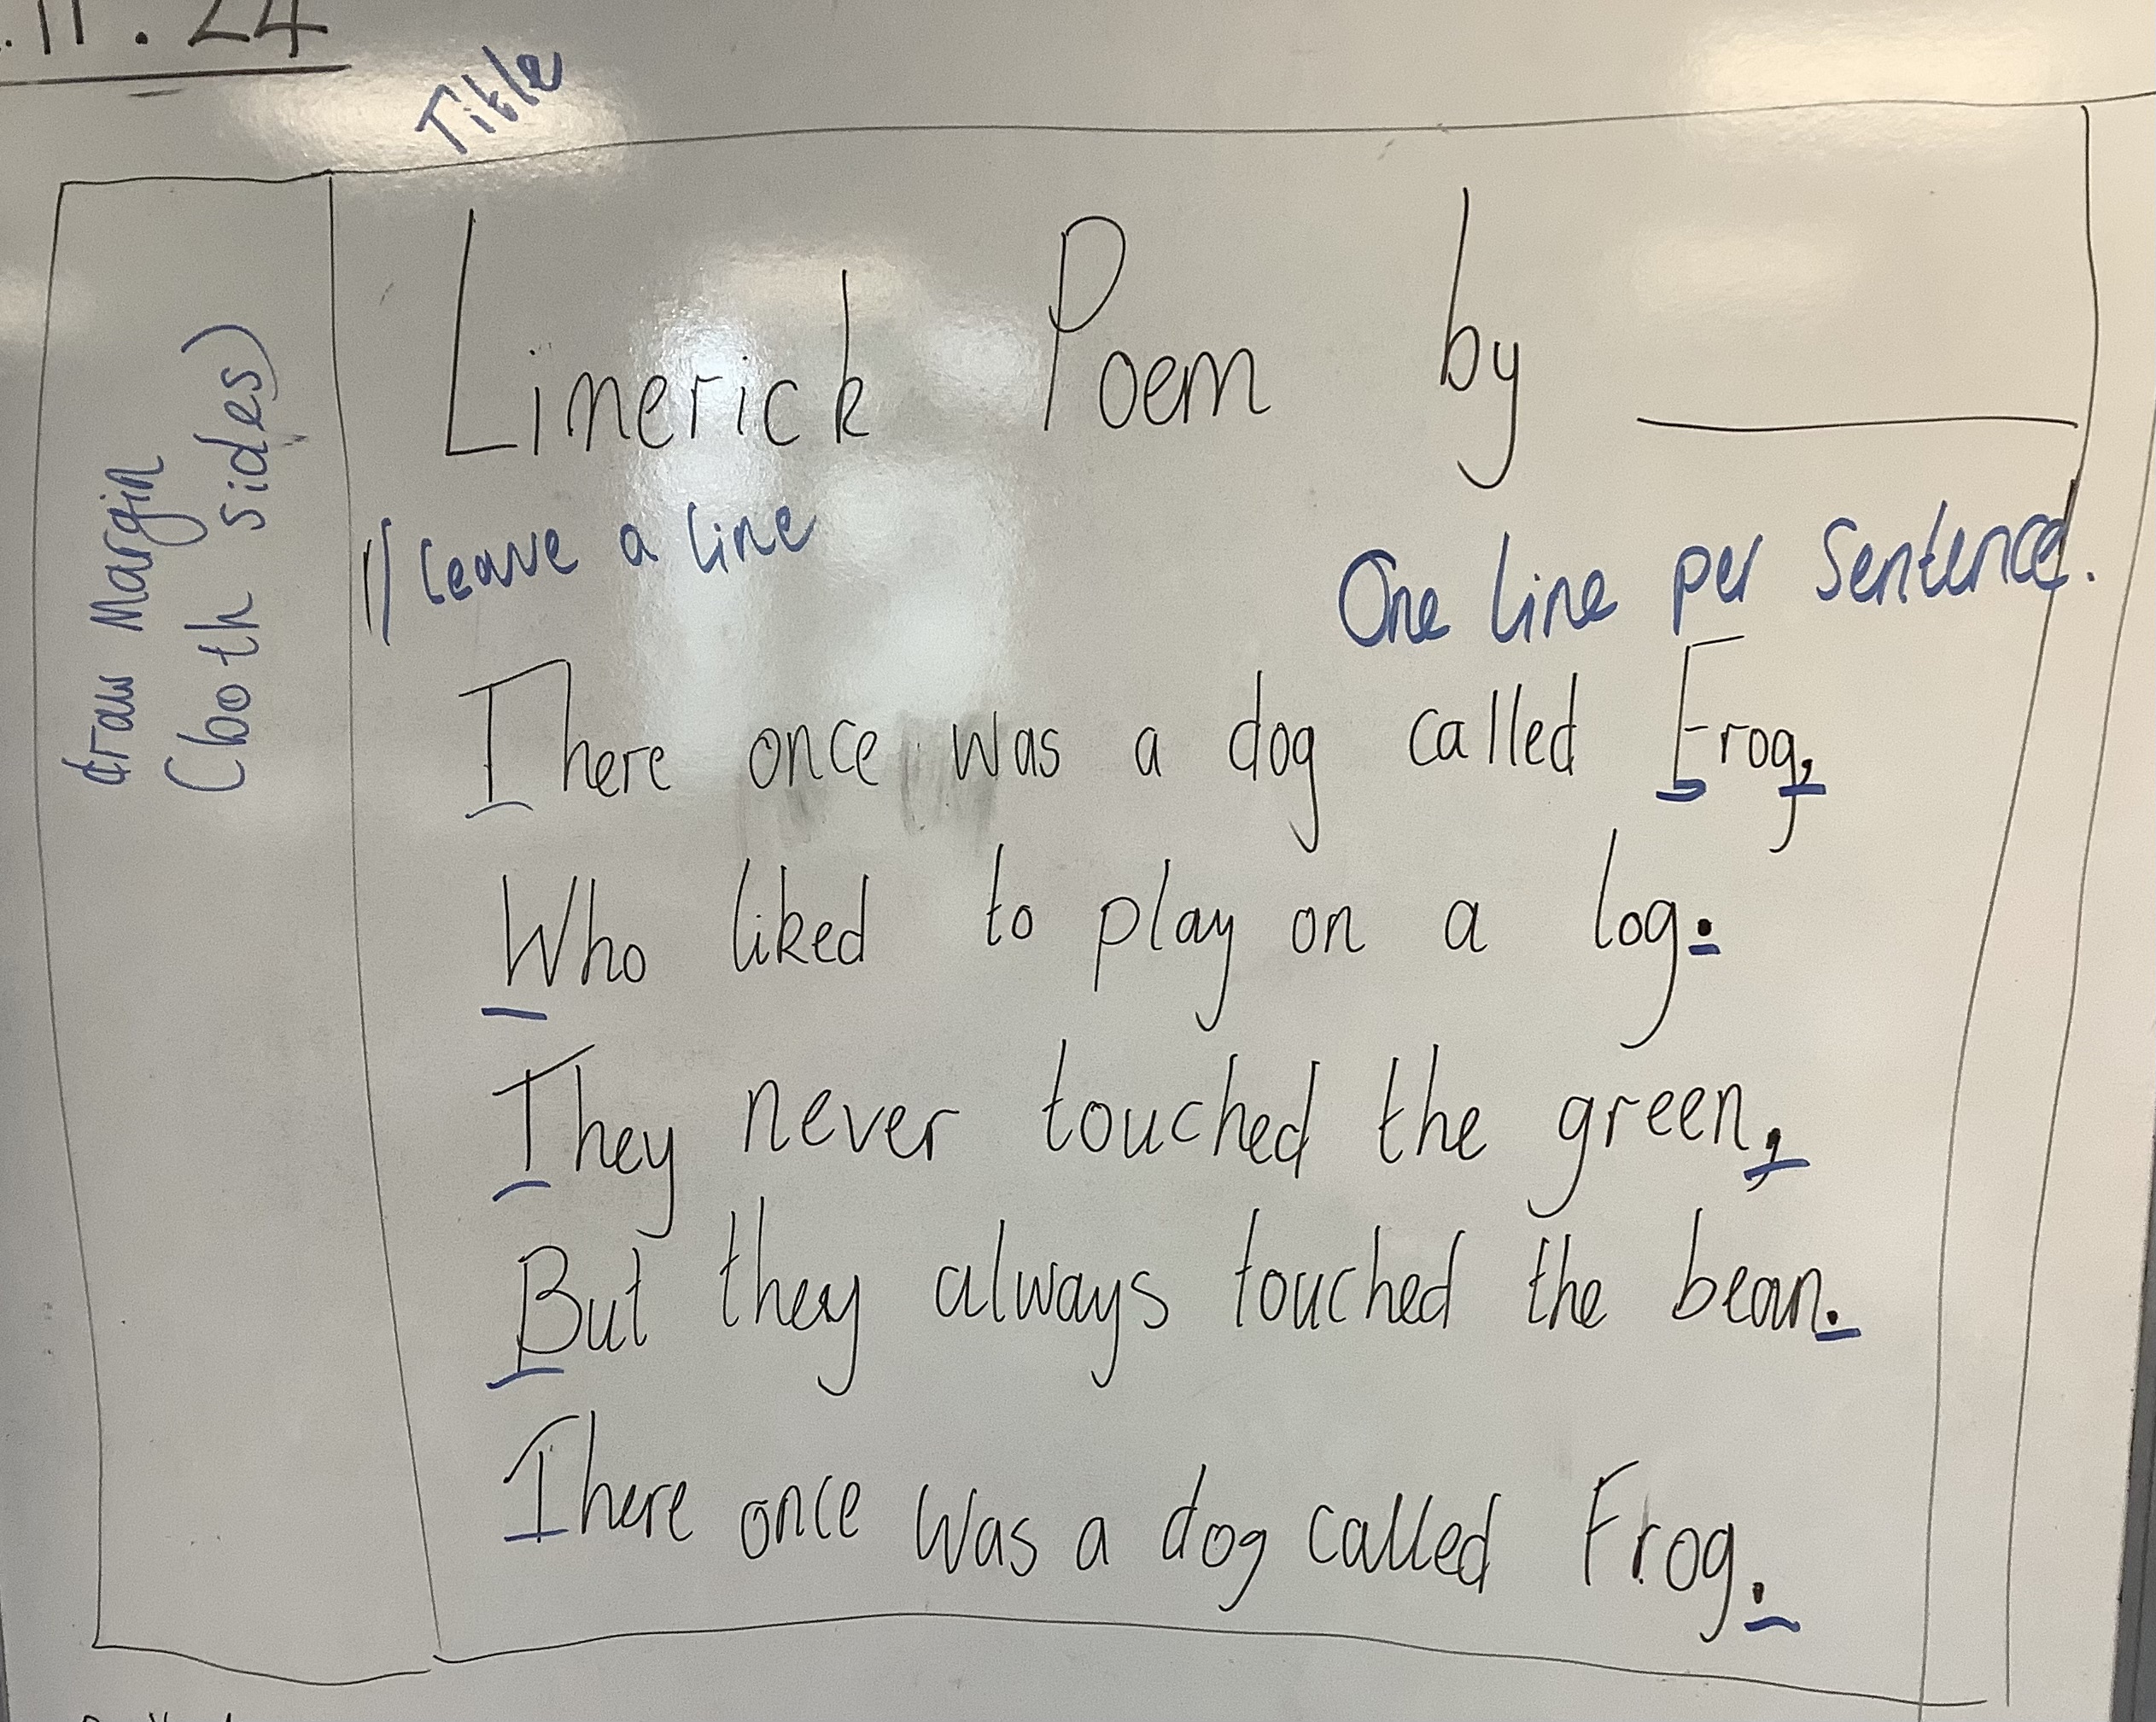 .11.24
Title
Limerick Poem by
draw Margin
(both sides)
// leave a line
One line per sentence.
There once was a dog called Frog,
Who liked to play on a log.
They never touched the green,
But they always touched the bean.
There once was a dog called Frog.